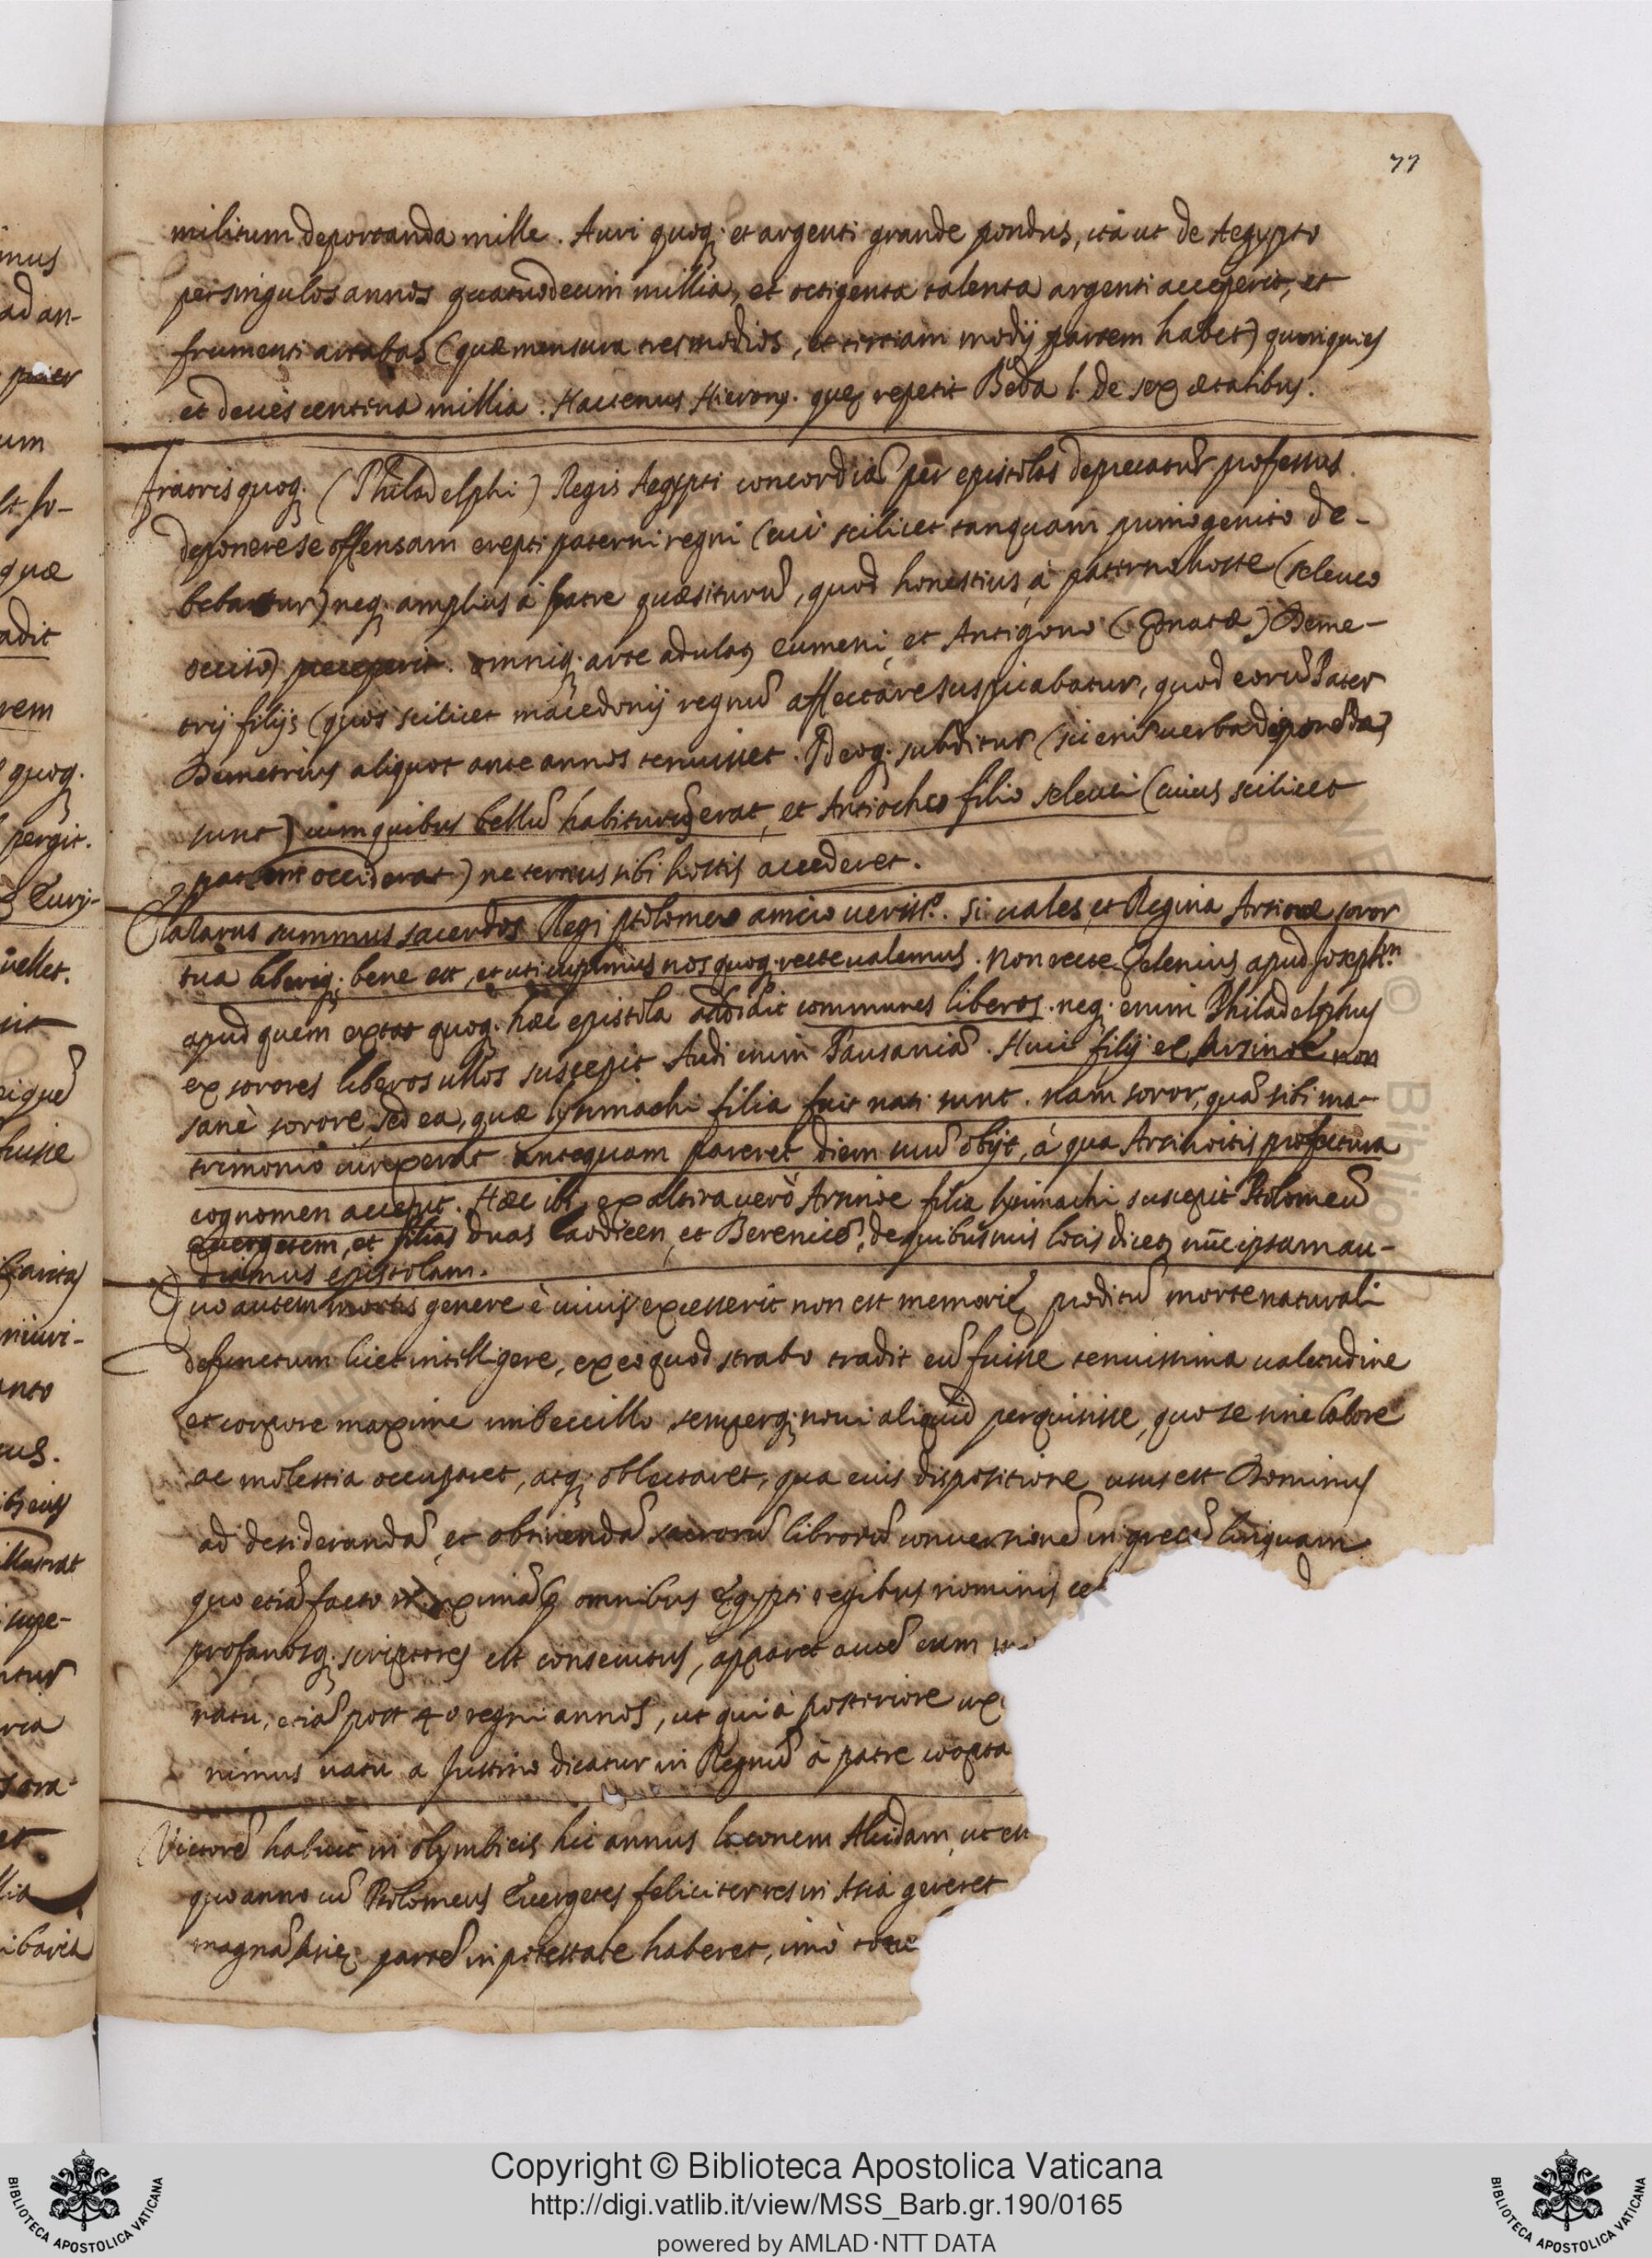 77
militum deportanda mille. Auri quoq; et argenti grande pondus, ità ut de Aegypto
per singulos annos quatuordecim millia, et octigenta talenta argenti acceperit, et
frumenti artabas (quæ mensura tres modios, et tertiam modij partem habet) quinquies
et decies centena millia. Hactenus Hierony. quę repetit Beda l. de sex ætatibus.
Fratris quoq; (Philadelphi) Regis Aegypti concordiã per epistolas deprecatur professus
deponere se offensam erepti paterni regni (cui scilicet tanquam primogenito de-
bebatur) neq; amplius à fratre quæsiturũ, quod honestius à paterno hoste (seleuco
occiso) perceperit. omniq; arte adulaꝫ eumeni, et Antigono (Gonatæ) Deme-
trij filijs (quos scilicet macedonij regnũ affectare suspicabatur, quod eorũ Pater
Demetrius aliquot ante annos tenuisset. Ideoq; subditur (sic enĩ verba disponẽda
sunt) cum quibus bellũ habiturus erat, et Antiocho filio seleuci (cuius scilicet
patrem occiderat) ne tertius sibi hostis accederet.
Eleazarus summus sacerdos Regi ptolomeo amico veriss.º. Si vales, et Regina Arsinoe soror
tua liberiq; bene est, et uti cupimus nos quoq; recte valemus. Non recte Gelenius apud Joseph.m
apud quem extat quoq; hæc epistola addidit communes liberos. neq; enim Philadelphus
ex sorores liberos ullos suscepit. Audi enim Pausaniã. Huic filij ex Arsinoe non
sanè sorore, sed ea, quæ lysimachi filia fuit nati sunt. nam soror, quã sibi ma-
trimonio iunxerat antequam pareret diem suũ obijt, à qua Arsinoitis profectura
cognomen accepit. Hæc ibi, ex altera verò Arsinoe filia lysimachi suscepit Ptolomeũ
Evergetem, et filias duas Laodicen, et Berenicẽ, de quibus suis locis dicet, nũc ipsam au-
diamus epistolam.
Quo autem mortis genere è vivis excesserit non est memorię proditũ morte naturali
defunctum licet intelligere, ex eo quod strabo tradit eũ fuisse tenuissima valetudine
et corpore maxime imbeccillo, semperq; novi aliquid perquisisse, quo se sine labore
ac molestia occuparet, atq; oblectaret, qua eius dispositione usus est Dominus
ad desiderandã, et obtinendã sacrorũ librorũ conversionẽ in grecã linguam
quo etiã facto omnibus Ægypti regibus nominis ce
profanosq; scriptores est consecutus, apparet autẽ eum
natu, etiã post 40 regni annos, ut qui à posteriore ux
nimus natu a Justino dicatur in Regnũ à patre coopta
Victorẽ habuit in olympicis hic annus laconem Alcidam, ut eu
quo anno cũ Ptolomeus Evergetes feliciter res in Asia gereret
magnã Asię partẽ in potestate haberet, imò tot
Copyright © Biblioteca Apostolica Vaticana
http://digi.vatlib.it/view/MSS_Barb.gr.190/0165
powered by AMLAD·NTT DATA
BIBLIOTECA APOSTOLICA VATICANA
BIBLIOTECA APOSTOLICA VATICANA